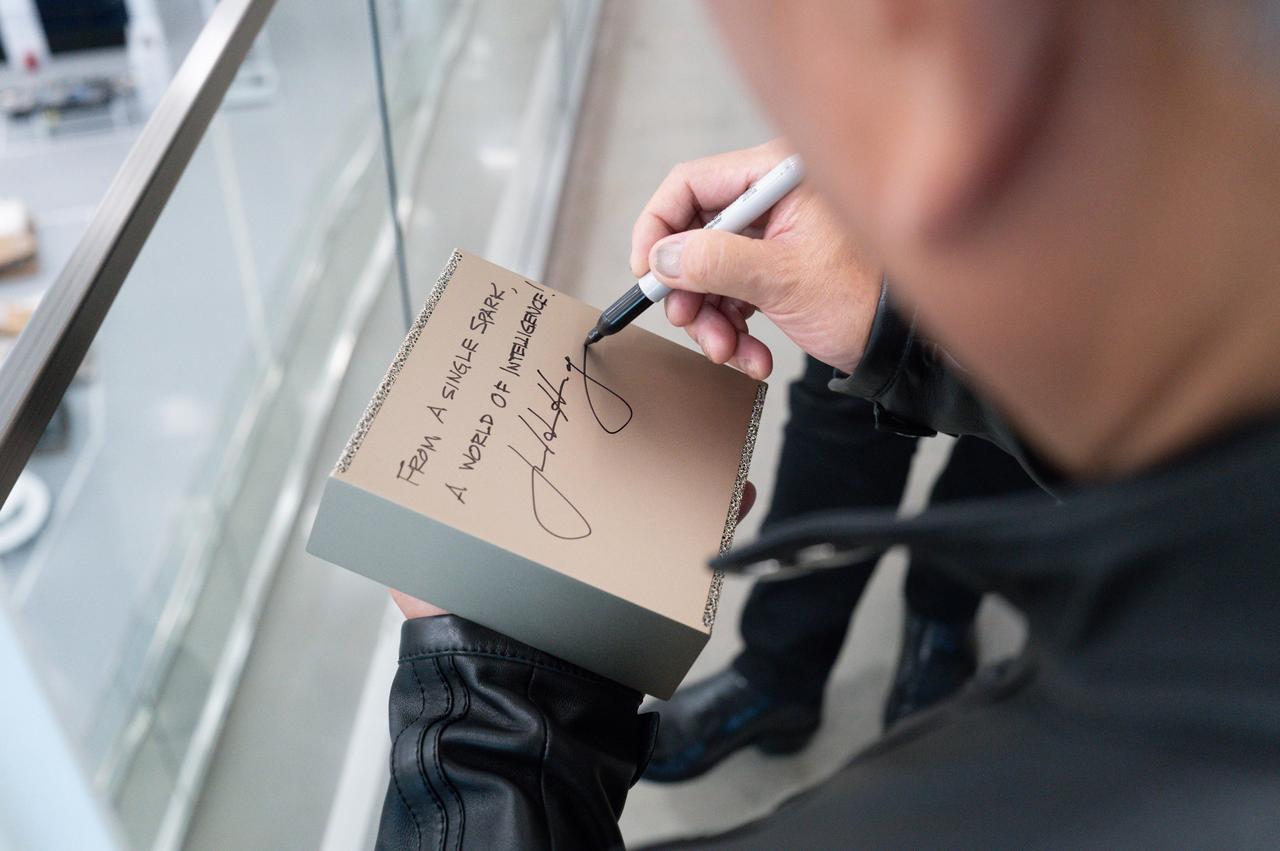 FROM A SINGLE SPARK,
A WORLD OF INTELLIGENCE!